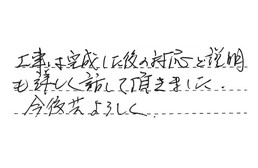 工事は完成した後の対応と説明
も詳しく話して頂きました。
今後共よろしく